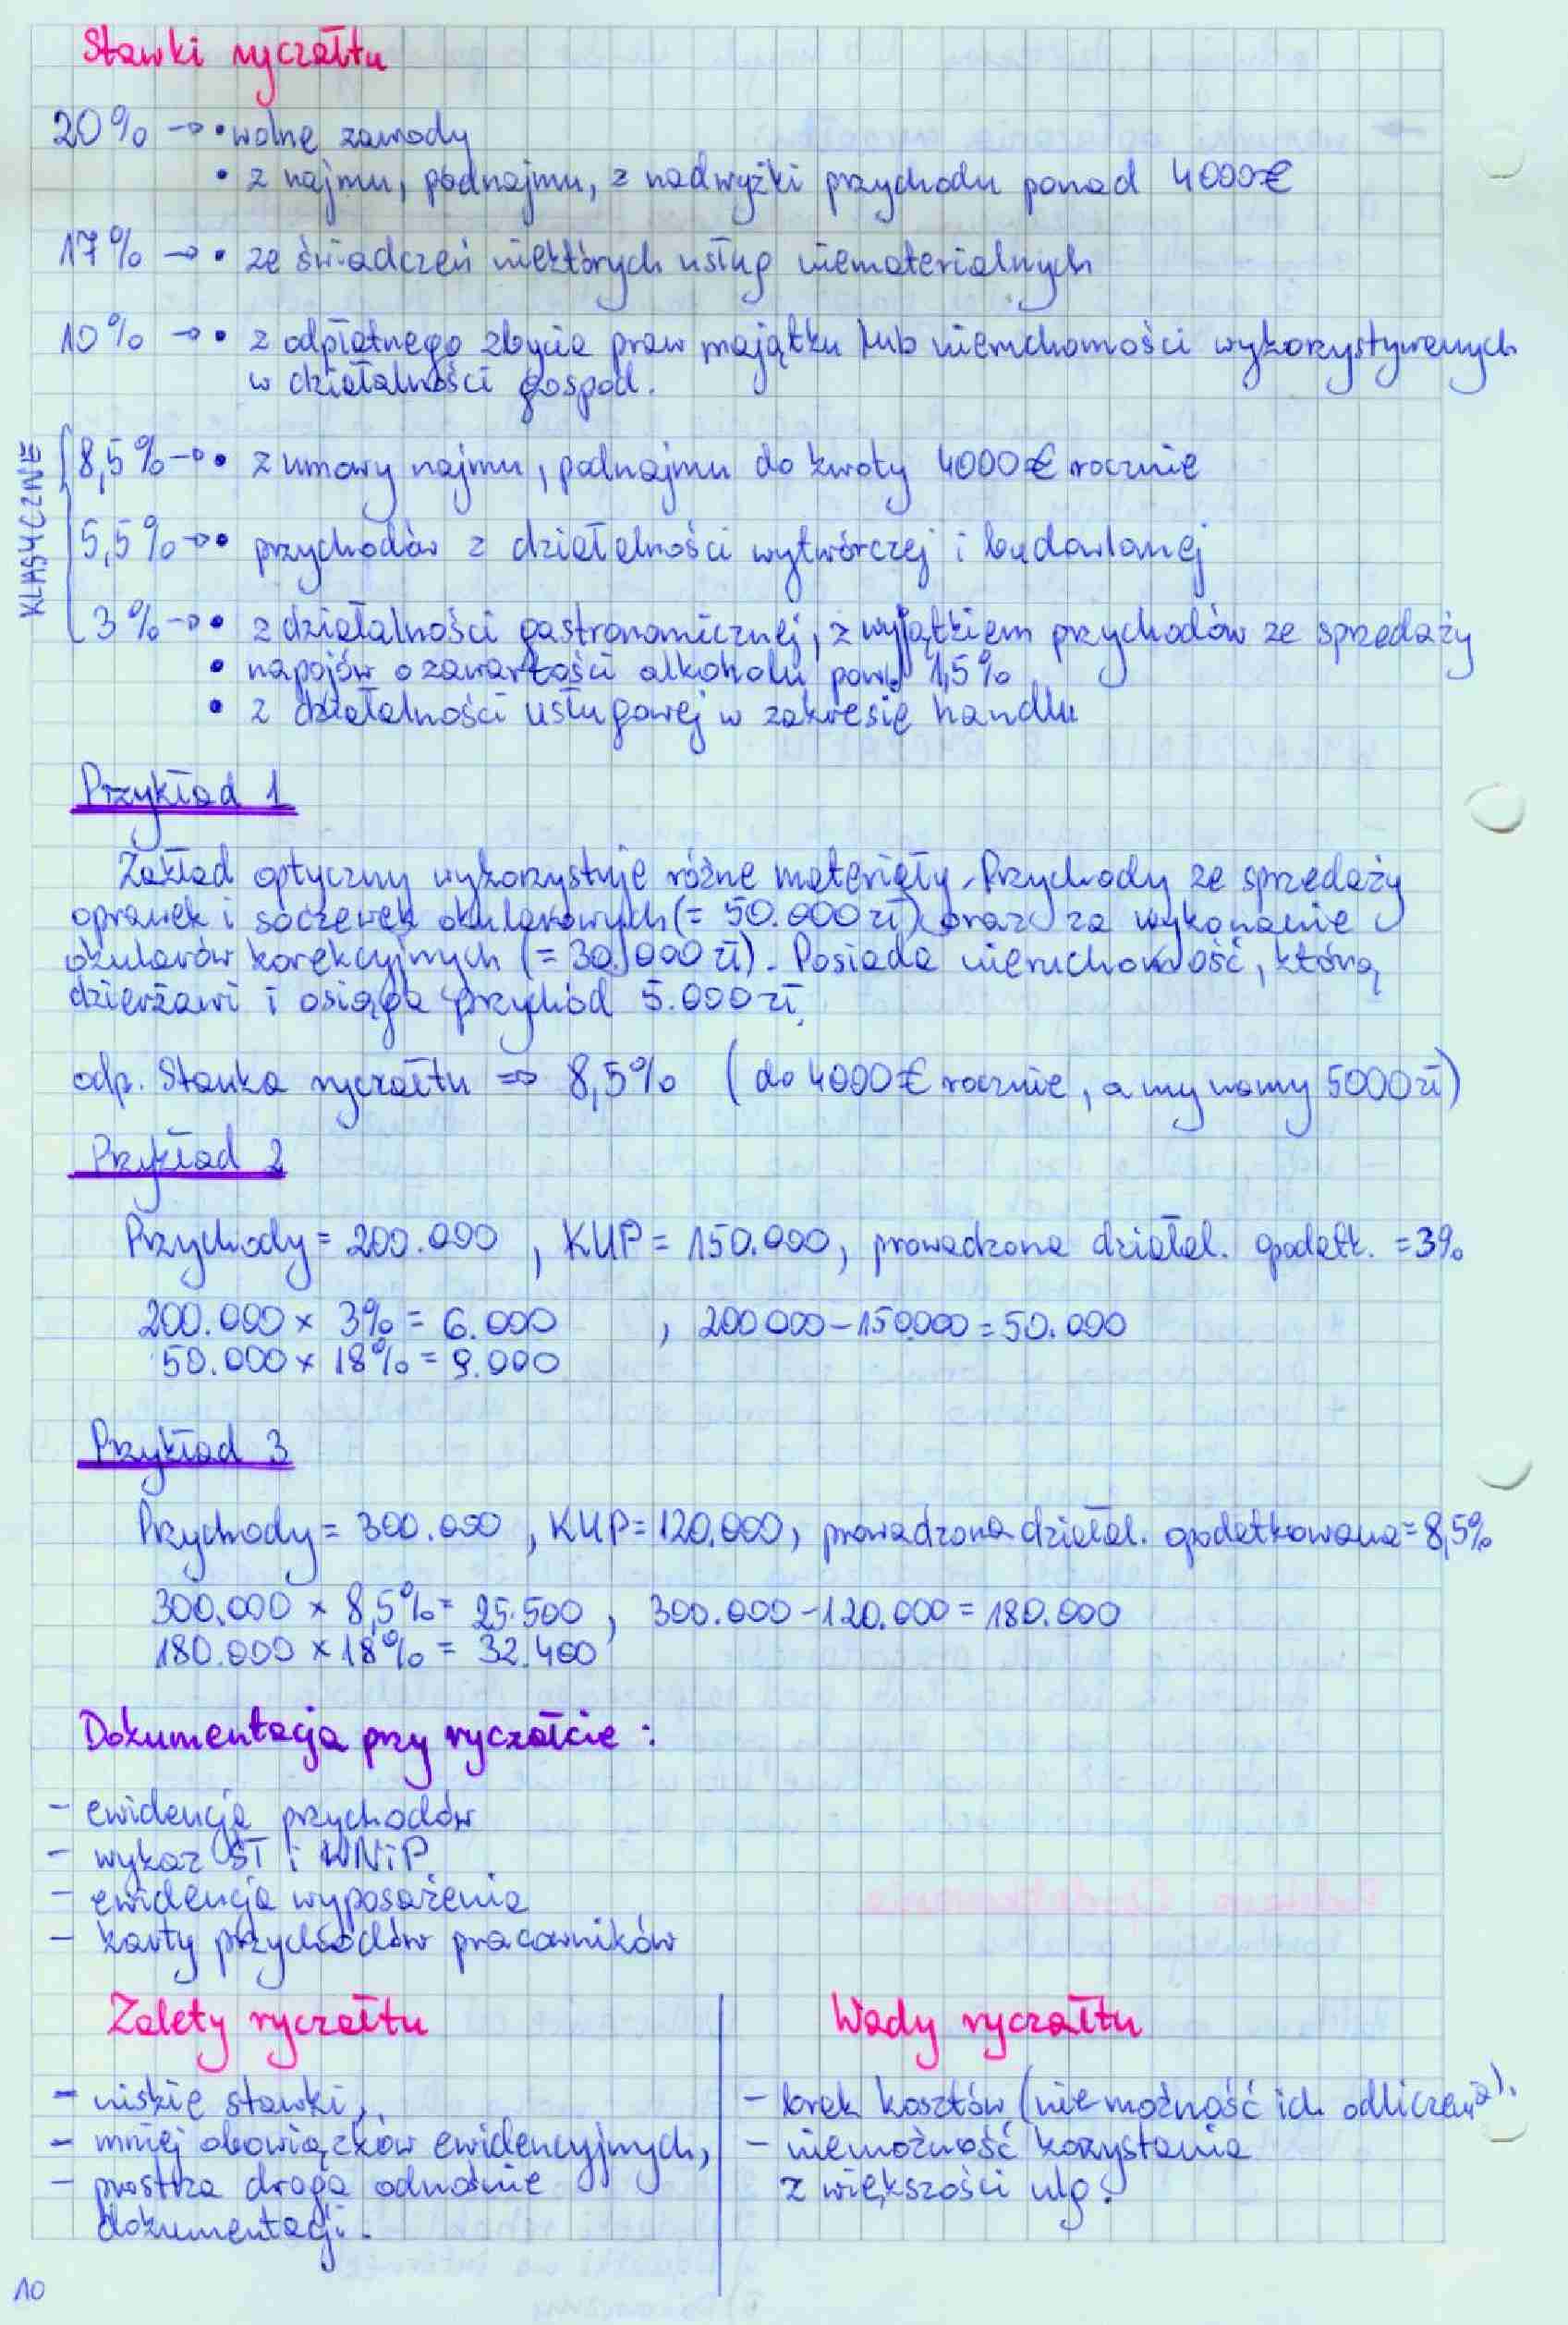 Stawki ryczałtu
20% → • wolne zawody
• z najmu, podnajmu, z nadwyżki przychodu ponad 4000€
17% → • ze świadczeń niektórych usług niematerialnych
10% → • z odpłatnego zbycia praw majątku lub nieruchomości wykorzystywanych
w działalności gospod.
KLASYCZNE
8,5% → • z umowy najmu, podnajmu do kwoty 4000€ rocznie
5,5% → • przychodów z działalności wytwórczej i budowlanej
3% → • z działalności gastronomicznej, z wyjątkiem przychodów ze sprzedaży
• napojów o zawartości alkoholu pow. 1,5%
• z działalności usługowej w zakresie handlu
Przykład 1
Zakład optyczny wykorzystuje różne materiały. Przychody ze sprzedaży
oprawek i soczewek okularowych (= 50.000 zł) oraz za wykonanie
okularów korekcyjnych (= 30.000 zł). Posiada nieruchomość, którą
dzierżawi i osiąga przychód 5.000 zł.
odp. Stawka ryczałtu => 8,5% (do 4000€ rocznie, a my mamy 5000 zł)
Przykład 2
Przychody = 200.000 , KUP = 150.000, prowadzona działal. opodatk. = 3%
200.000 x 3% = 6.000 , 200 000 - 150.000 = 50.000
50.000 x 18% = 9.000
Przykład 3
Przychody = 300.000 , KUP = 120.000, prowadzona działal. opodatkowana = 8,5%
300.000 x 8,5% = 25.500 , 300.000 - 120.000 = 180.000
180.000 x 18% = 32.400
Dokumentacja przy ryczałcie :
- ewidencja przychodów
- wykaz ŚT i WNiP
- ewidencja wyposażenia
- karty przychodów pracowników
Zalety ryczałtu
- niskie stawki,
- mniej obowiązków ewidencyjnych,
- prostsza droga odnośnie
dokumentacji.
Wady ryczałtu
- brak kosztów (niemożność ich odliczenia),
- niemożność korzystania
z większości ulg.
10